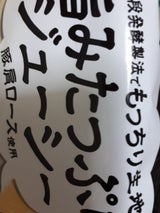 段発酵製法でもっちり生地
旨みたっぷ
ジューシー
豚肩ロース使用